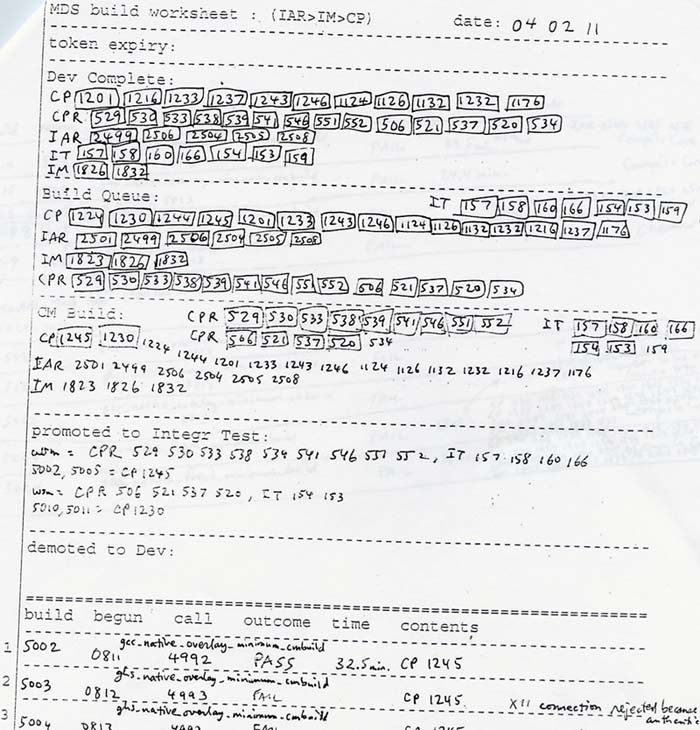 MDS build worksheet : (IAR>IM>CP) date: 04 02 11
token expiry:
Dev Complete:
CP 1201 1216 1233 1237 1243 1246 1124 1126 1132 1232 1176
CPR 529 530 533 538 539 541 546 551 552 506 521 537 520 534
IAR 2499 2506 2504 2505 2508
IT 157 158 160 166 154 153 159
IM 1826 1832
Build Queue: IT 157 158 160 166 154 153 159
CP 1224 1230 1244 1245 1201 1233 1243 1246 1124 1126 1132 1232 1216 1237 1176
IAR 2501 2499 2506 2504 2505 2508
IM 1823 1826 1832
CPR 529 530 533 538 539 541 546 551 552 506 521 537 520 534
CM Build: CPR 529 530 533 538 539 541 546 551 552 IT 157 158 160 166
CP 1245 1230 1224 CPR 506 521 537 520 534 154 153 159
1244 1201 1233 1243 1246 1124 1126 1132 1232 1216 1237 1176
IAR 2501 2499 2506 2504 2505 2508
IM 1823 1826 1832
promoted to Integr Test:
= CPR 529 530 533 538 539 541 546 551 552, IT 157 158 160 166
5002, 5005 = CP 1245
= CPR 506 521 537 520, IT 154 153
5010, 5011 = CP 1230
demoted to Dev:
build begun call outcome time contents
gcc_native_overlay_minimum_cmbuild
1 5002 0811 4992 PASS 32.5 min. CP 1245
ghs_native_overlay_minimum_cmbuild
2 5003 0812 4993 FAIL CP 1245. X11 connection rejected because
ghs_native_overlay_minimum_cmbuild
3 5004 0813 FAIL 1245